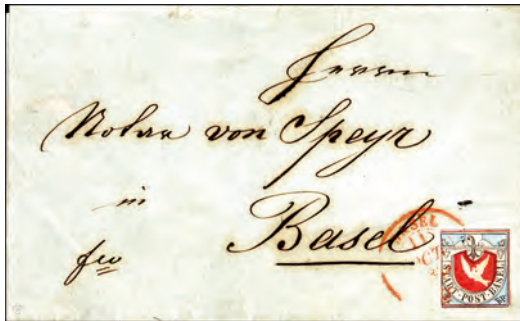 Herrn
Notar von Speyr
in
Basel
fco
BASEL
11
OCT
STADT-POST-BASEL